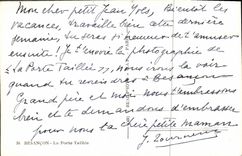 Mon cher petit Jean Yves, Bientôt les
vacances, travaille bien cette dernière
semaine, tu seras si heureux de t'amuser
ensuite! Je t'envoie la photographie de
"La Porte Taillée", nous irons la voir
quand tu reviendras à Besançon
Grand père et moi nous t'embrassons
bien et te demandons d'embrasser
pour nous ta chère petite maman
G. Tournoux
36 BESANÇON - La Porte Taillée